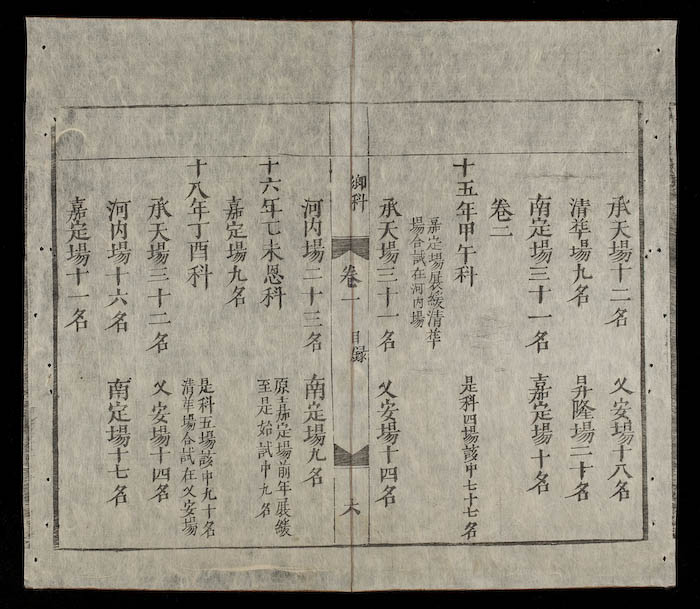 承天場十二名 乂安場十八名
清華場九名 昇隆場二十名
南定場三十一名 嘉定場十名
卷二
十五年甲午科 是科四場該中七十七名
嘉定場展緩清華
場合試在河內場
承天場三十一名 乂安場十四名
鄉科 卷一 目錄 六
河內場二十三名 南定場九名
十六年乙未恩科 原嘉定場前年展緩
至是始試中九名
嘉定場九名
十八年丁酉科 是科五場該中九十名
清華場合試在乂安場
承天場三十二名 乂安場十四名
河內場十六名 南定場十七名
嘉定場十一名